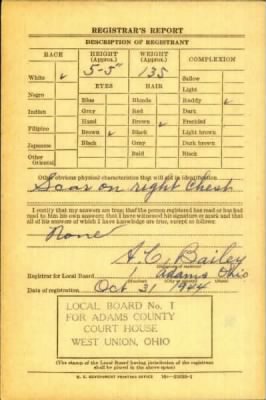 REGISTRAR'S REPORT
DESCRIPTION OF REGISTRANT
RACE HEIGHT (Approx.) WEIGHT (Approx.) COMPLEXION
White ✓ 5-5" 135 Sallow
Light
Negro EYES HAIR Ruddy ✓
Blue Blonde
Indian Gray Red Dark
Hazel Brown ✓ Freckled
Filipino Brown ✓ Black Light brown
Japanese Black Gray Dark brown
Bald Black
Other Oriental
Other obvious physical characteristics that will aid in identification
Scar on right Chest
I certify that my answers are true; that the person registered has read or has had
read to him his own answers; that I have witnessed his signature or mark and that
all of his answers of which I have knowledge are true, except as follows:
None
A. C. Bailey
Registrar for Local Board 1 Adams Ohio
Date of registration Oct 31 1944
LOCAL BOARD No. 1
FOR ADAMS COUNTY
COURT HOUSE
WEST UNION, OHIO
(The stamp of the Local Board having jurisdiction of the registrant
shall be placed in the above space)
U. S. GOVERNMENT PRINTING OFFICE